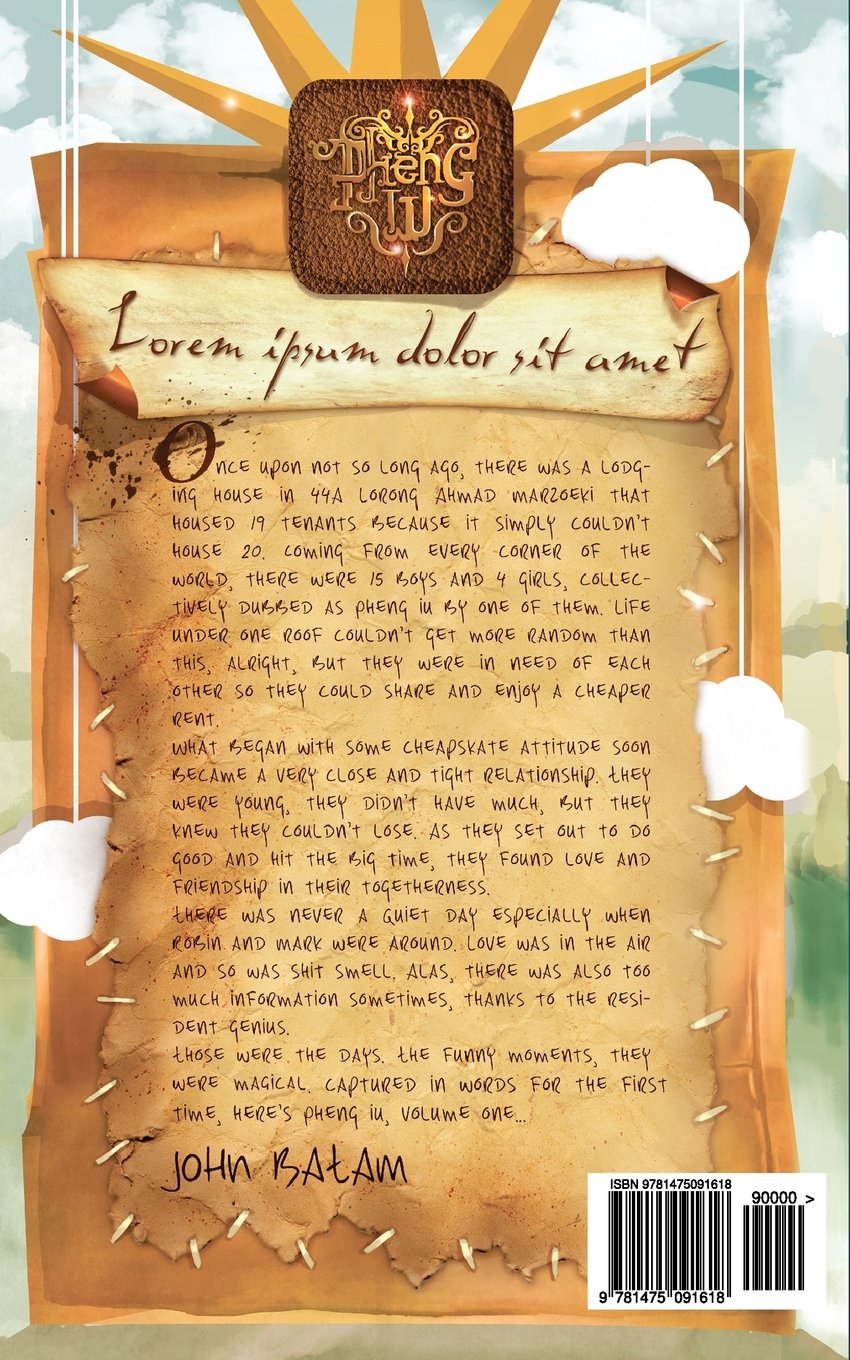 Pheng
IU
Lorem ipsum dolor sit amet
ONCE UPON NOT SO LONG AGO, THERE WAS A LODG-
ING HOUSE IN 44A LORONG AHMAD MARZOEKI THAT
HOUSED 19 TENANTS BECAUSE IT SIMPLY COULDN'T
HOUSE 20. COMING FROM EVERY CORNER OF THE
WORLD, THERE WERE 15 BOYS AND 4 GIRLS, COLLEC-
TIVELY DUBBED AS PHENG IU BY ONE OF THEM. LIFE
UNDER ONE ROOF COULDN'T GET MORE RANDOM THAN
THIS, ALRIGHT, BUT THEY WERE IN NEED OF EACH
OTHER SO THEY COULD SHARE AND ENJOY A CHEAPER
RENT.
WHAT BEGAN WITH SOME CHEAPSKATE ATTITUDE SOON
BECAME A VERY CLOSE AND TIGHT RELATIONSHIP. THEY
WERE YOUNG, THEY DIDN'T HAVE MUCH, BUT THEY
KNEW THEY COULDN'T LOSE. AS THEY SET OUT TO DO
GOOD AND HIT THE BIG TIME, THEY FOUND LOVE AND
FRIENDSHIP IN THEIR TOGETHERNESS.
THERE WAS NEVER A QUIET DAY ESPECIALLY WHEN
ROBIN AND MARK WERE AROUND. LOVE WAS IN THE AIR
AND SO WAS SHIT SMELL. ALAS, THERE WAS ALSO TOO
MUCH INFORMATION SOMETIMES, THANKS TO THE RESI-
DENT GENIUS.
THOSE WERE THE DAYS. THE FUNNY MOMENTS, THEY
WERE MAGICAL. CAPTURED IN WORDS FOR THE FIRST
TIME, HERE'S PHENG IU, VOLUME ONE...
JOHN BATAM
ISBN 9781475091618
90000 >
9 781475 091618